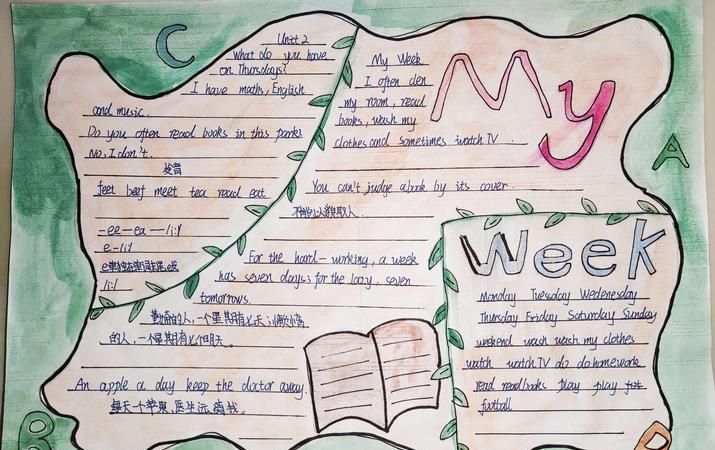 C
Unit 2
What do you have
on Thursdays?
I have maths, English
and music.
Do you often read books in this park?
No, I don't.
发音
feet beef meet tea read eat
-ee--ea—/i:/
e-/i:/
/i:/
My Week
I often clen
my room, read
books, wash my
clothes and sometimes watch TV.
You can't judge a book by its cover.
不能以人貌取人.
For the hard-working, a week
has seven days; for the lazy, seven
tomorrows.
勤奋的人,一个星期有七天;懒惰
的人,一个星期有七个明天。
An apple a day keep the doctor away.
每天一个苹果,医生远离我。
My
A
Week
Monday Tuesday Wedenesday
Thursday Friday Saturday Sunday
weekend wach wash my clothes
watch watch TV do do homework
read read books play play
football
B